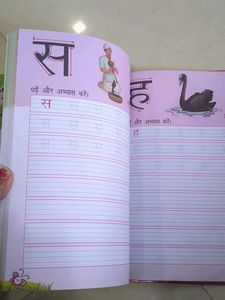 स
पढ़ें और अभ्यास करें।
स स स स
स स स स
स स स स
ह
और अभ्यास करें।
ह ह ह ह
ह ह ह ह
ह ह ह ह